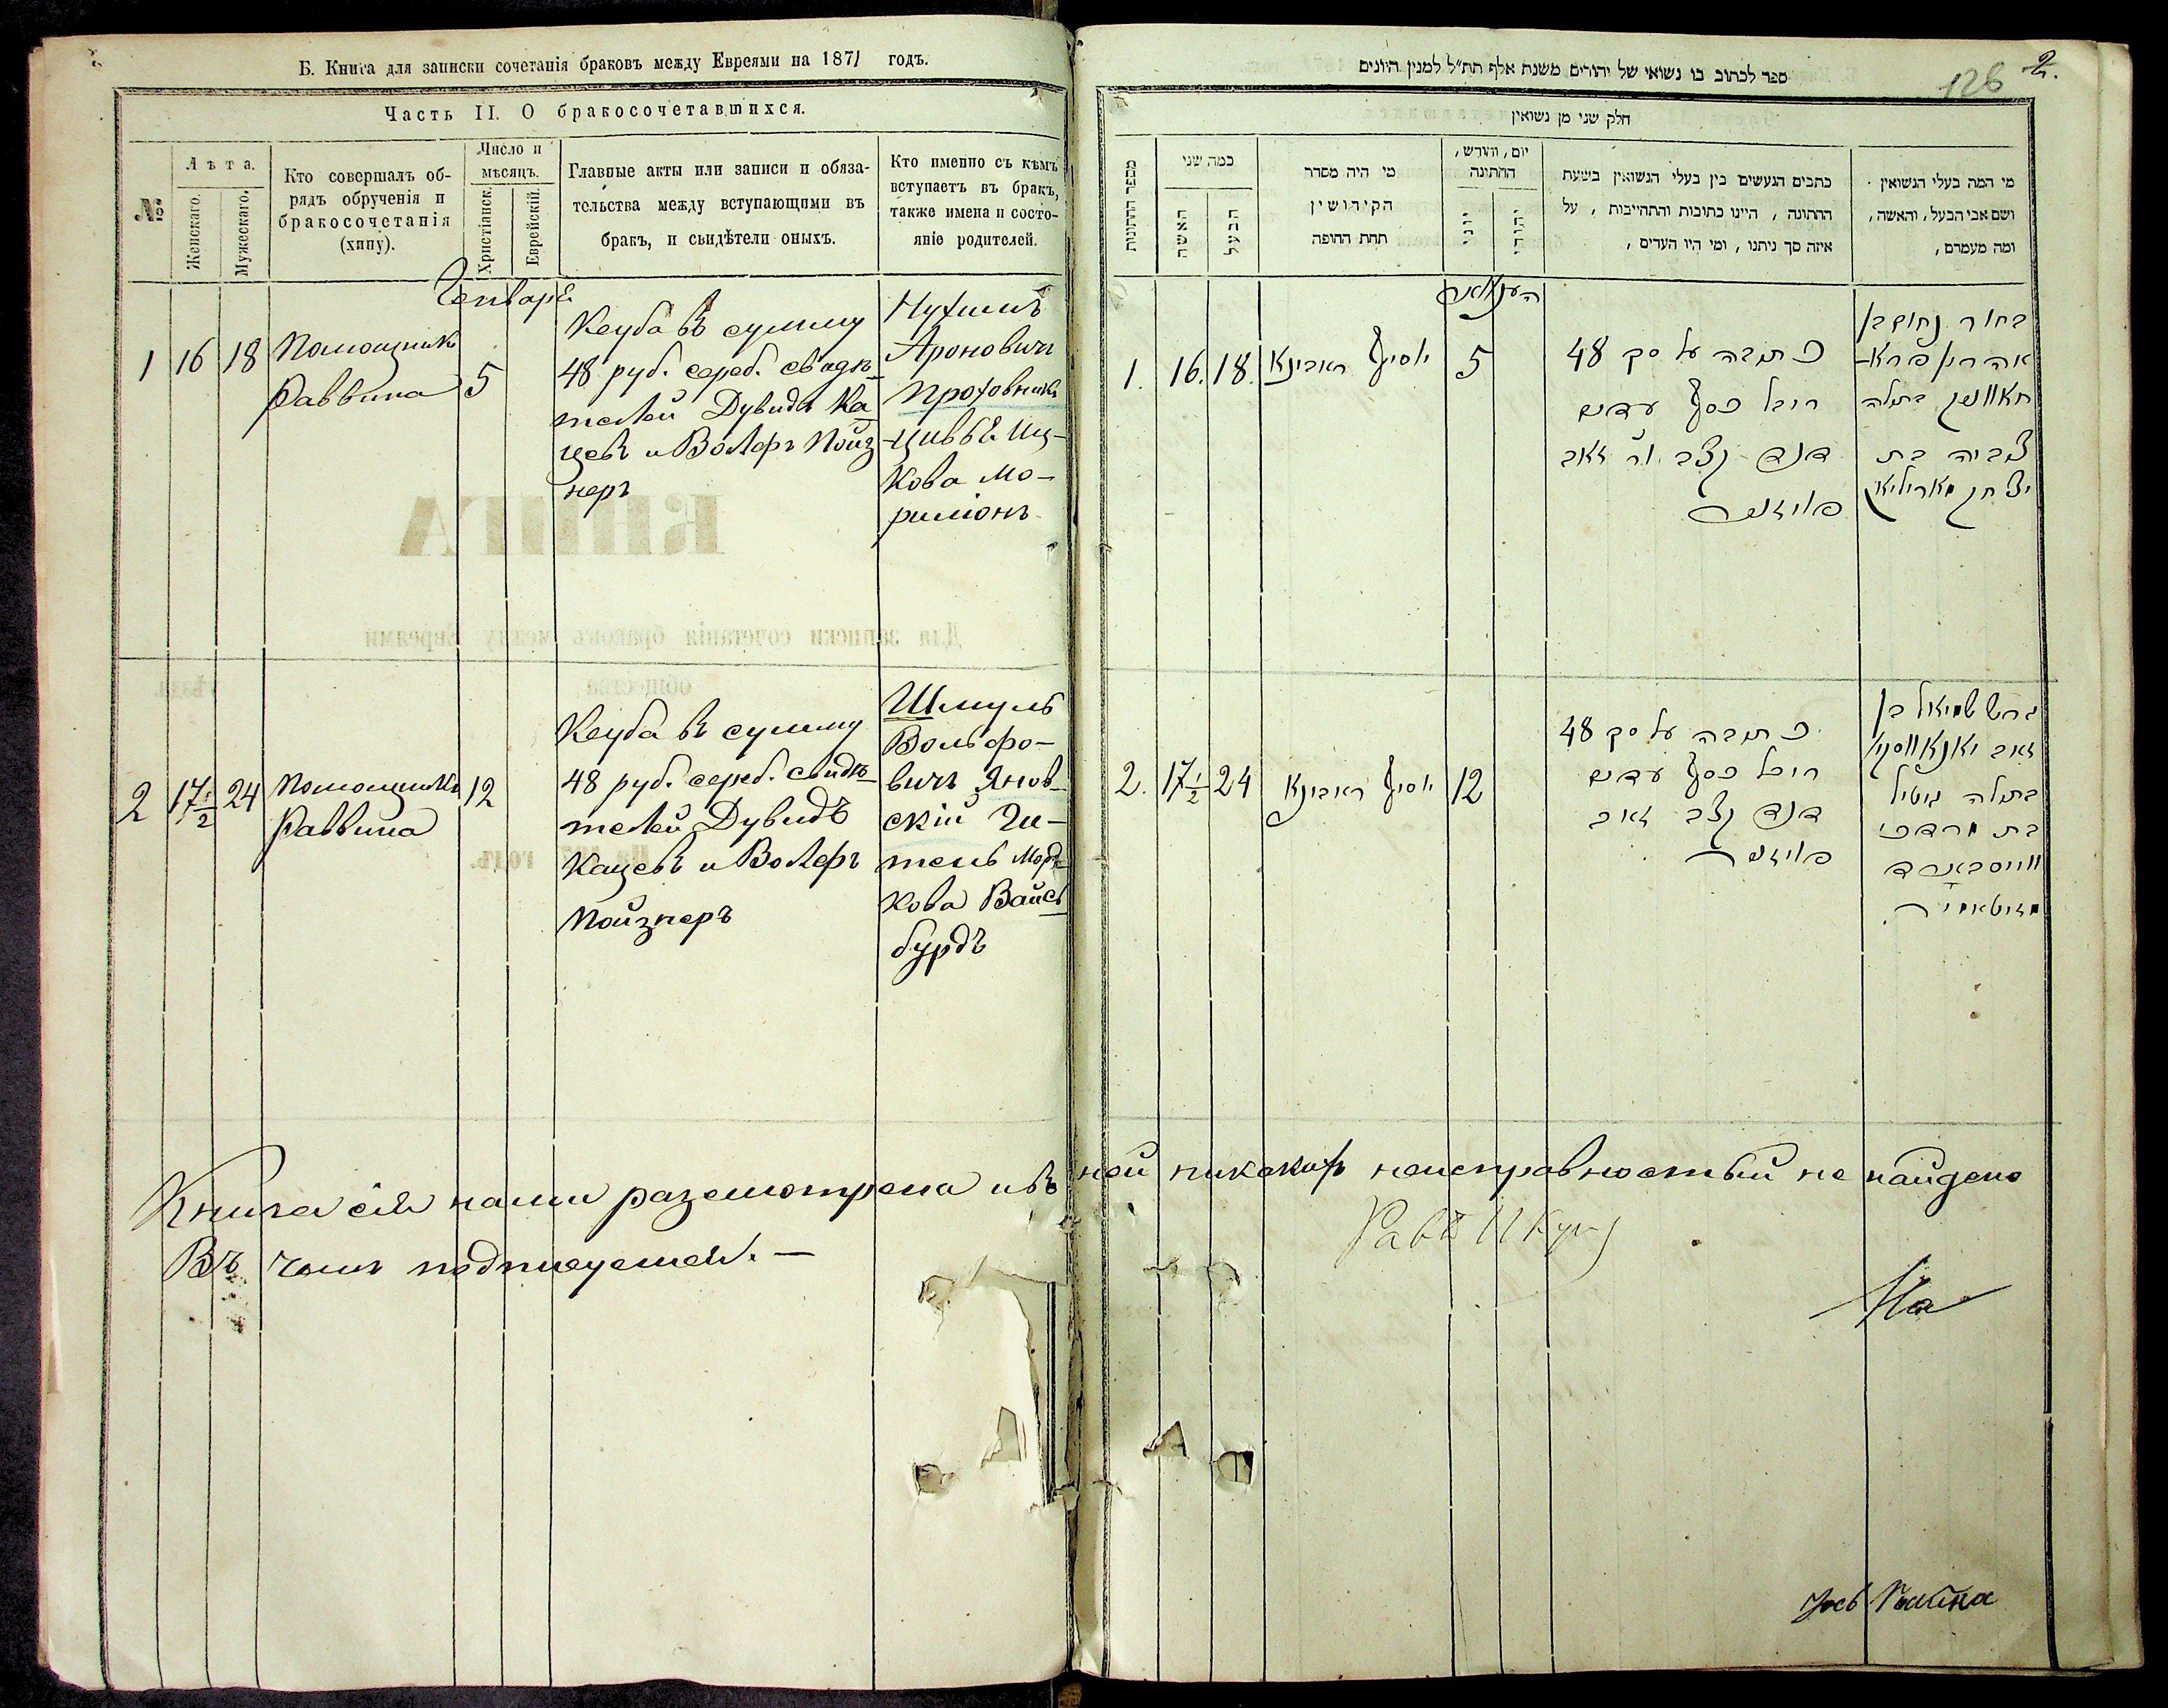 Б. Книга для записки сочетанія браковъ между Евреями на 1871 годъ.
Часть II. О бракосочетавшихся.
№
Лѣта.
Женскаго.
Мужескаго.
Кто совершалъ об-
рядъ обрученія и
бракосочетанія
(хипу).
Число и
мѣсяцъ.
Христіанск.
Еврейскій.
Главные акты или записи и обяза-
тельства между вступающими въ
бракъ, и свидѣтели оныхъ.
Кто именно съ кѣмъ
вступаетъ въ бракъ,
также имена и состо-
яніе родителей.
Генваря
1
16
18
Помощникъ
Раввина
5
Кеуба въ сумму
48 руб. сереб. свидѣ-
телей Дувидъ Ка-
цевъ и Волфъ Пойз
неръ
Нухимъ
Ароновичъ
Проховникъ
Цивья Иц-
кова Мо-
риліонъ
2
17½
24
Помощникъ
Раввина
12
Кеуба въ сумму
48 руб. сереб. свидѣ-
телей Дувидъ
Кацевъ и Волфъ
Пойзнеръ
Шмуль
Вольфо-
вичъ Янов-
скій Ги-
тель Морд-
кова Вайс-
бурдъ
Книга сія нами разсмотрена и въ ней никакихъ неисправностьй не найдено
Въ чемъ подписуемся. —
ספר לכתוב בו נשואי של יהודים משנת אלף תת״ל למנין היונים
126
2.
חלק שני מן נשואין
מספר החתונות
כמה שני
האשה
הבעל
מי היה מסדר
הקידושין
תחת החופה
יום, וחודש,
החתונה
יוני
יהודי
כתבים הנעשים בין בעלי הנשואין בשעת
החתונה, היינו כתובות והתחייבות, על
איזה סך ניתנו, ומי היו העדים,
מי המה בעלי הנשואין
ושם אבי הבעל, והאשה,
ומה מעמדם,
1.
16.
18.
יוסיף ראבינא
5
כתובה על סך 48
רובל כסף עדים
דוד קצב ור׳ זאב
פויזנר
בחור נחום בן
אהרן פרא-
חאווניק בתולה
צביה בת
יצחק מאריליאן
2.
17½
24
יוסיף ראבינא
12
כתובה על סך 48
רובל כסף עדים
דוד קצב זאב
פויזנר
גרוש שמואל בן
זאב יאנאווסקי
בתולה גיטיל
בת מרדכי
ווייסבארד